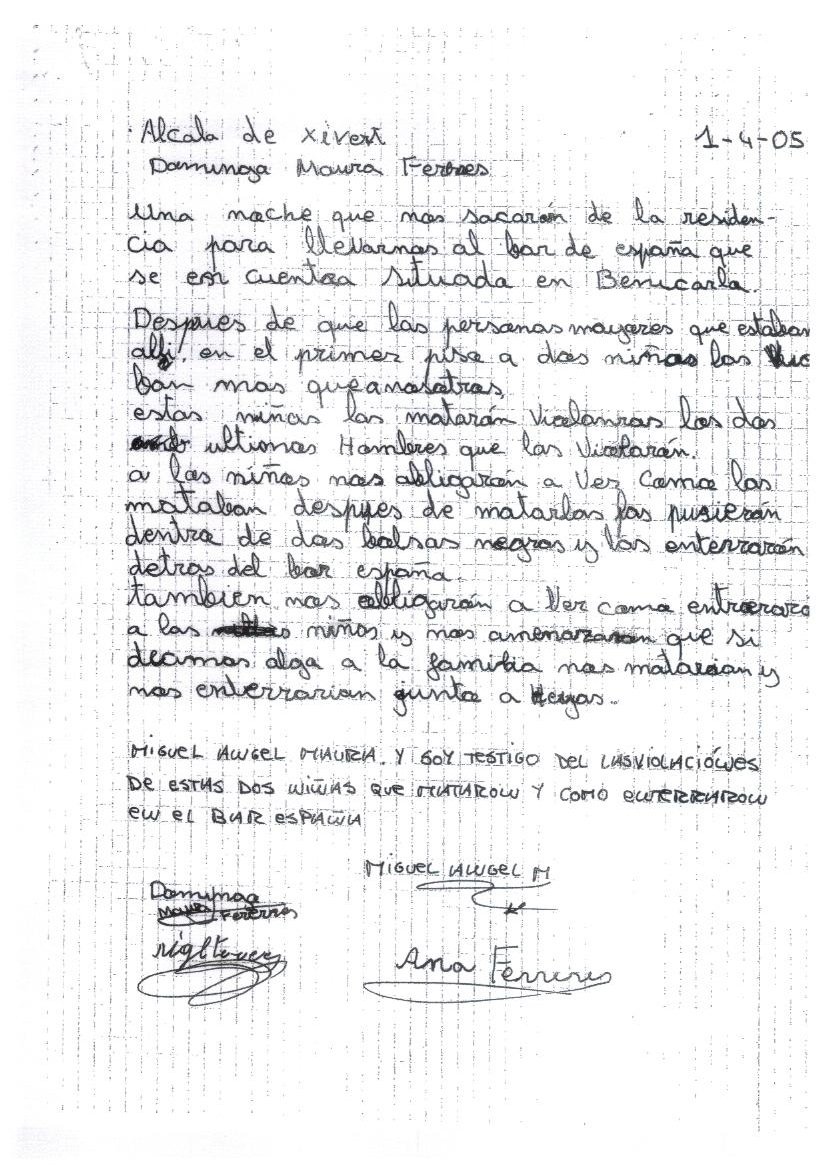 Alcala de xivert 1-4-05
Dominga Maura Ferreres
Una noche que nos sacarón de la residen-
cia para llevarnos al bar de españa que
se en cuentra situada en Benicarla.
Despues de que las personas mayores que estaban
alli, en el primer piso a dos niñas las
ban mas queanosotras,
estas niñas las matarón los dos
ultimos Hombres que las Violarón.
a las niñas nos obligarón a Ver Como las
mataban despues de matarlas las pusierón
dentro de dos bolsas negras y las enterrarón
detras del bar españa.
tambien nos obligarón a Ver como
a las niños y nos amenazaron que si
deciamos algo a la familia nos matarian y
nos enterrarian junto a
MIGUEL ANGEL MAURA. Y SOY TESTIGO DEL LASVIOLACIÓNES
DE ESTAS DOS NIÑAS QUE MATARON Y COMO ENTERRARON
EN EL BAR ESPAÑA
MIGUEL ANGEL M
Dominga
Maura Fererres
Ana Ferreres